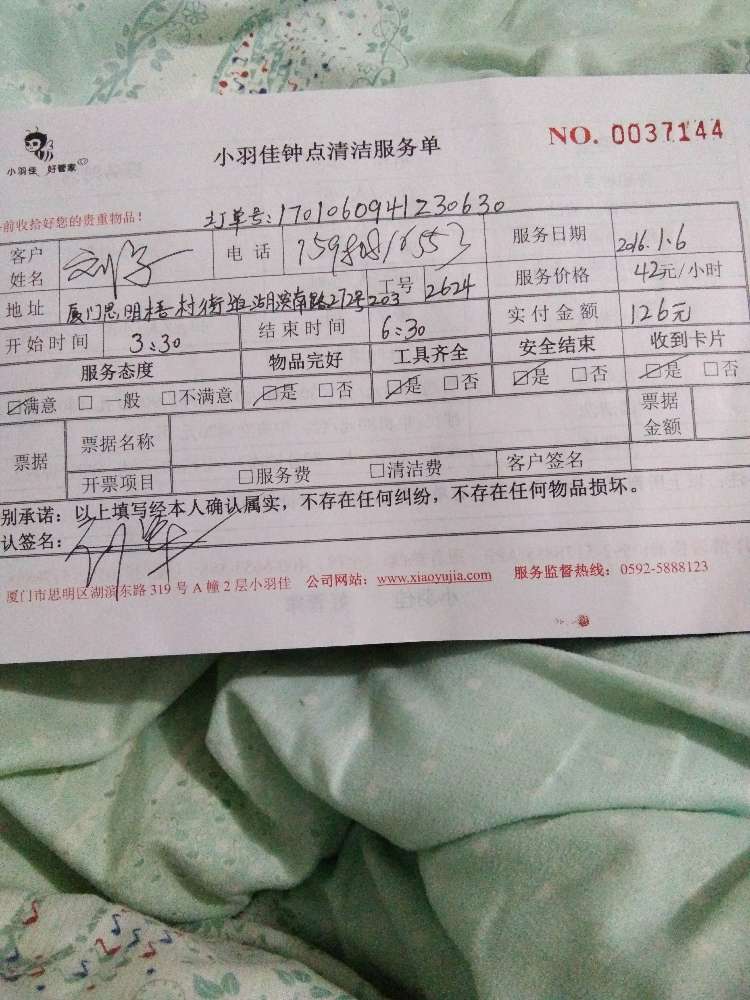 小羽佳 好管家
小羽佳钟点清洁服务单
NO. 0037144
前收拾好您的贵重物品！
订单号：1701060941230630
客户姓名 电话 服务日期 2016.1.6
地址 厦门思明梧村街道湖滨南路272号203 工号 2624 服务价格 42元/小时
开始时间 3:30 结束时间 6:30 实付金额 126元
服务态度 物品完好 工具齐全 安全结束 收到卡片
☑满意 □一般 □不满意 ☑是 □否 ☑是 □否 ☑是 □否 ☑是 □否
票据 票据名称 票据金额
开票项目 □服务费 □清洁费 客户签名
别承诺：以上填写经本人确认属实，不存在任何纠纷，不存在任何物品损坏。
认签名：
厦门市思明区湖滨东路 319 号 A 幢 2 层小羽佳 公司网站：www.xiaoyujia.com 服务监督热线：0592-5888123